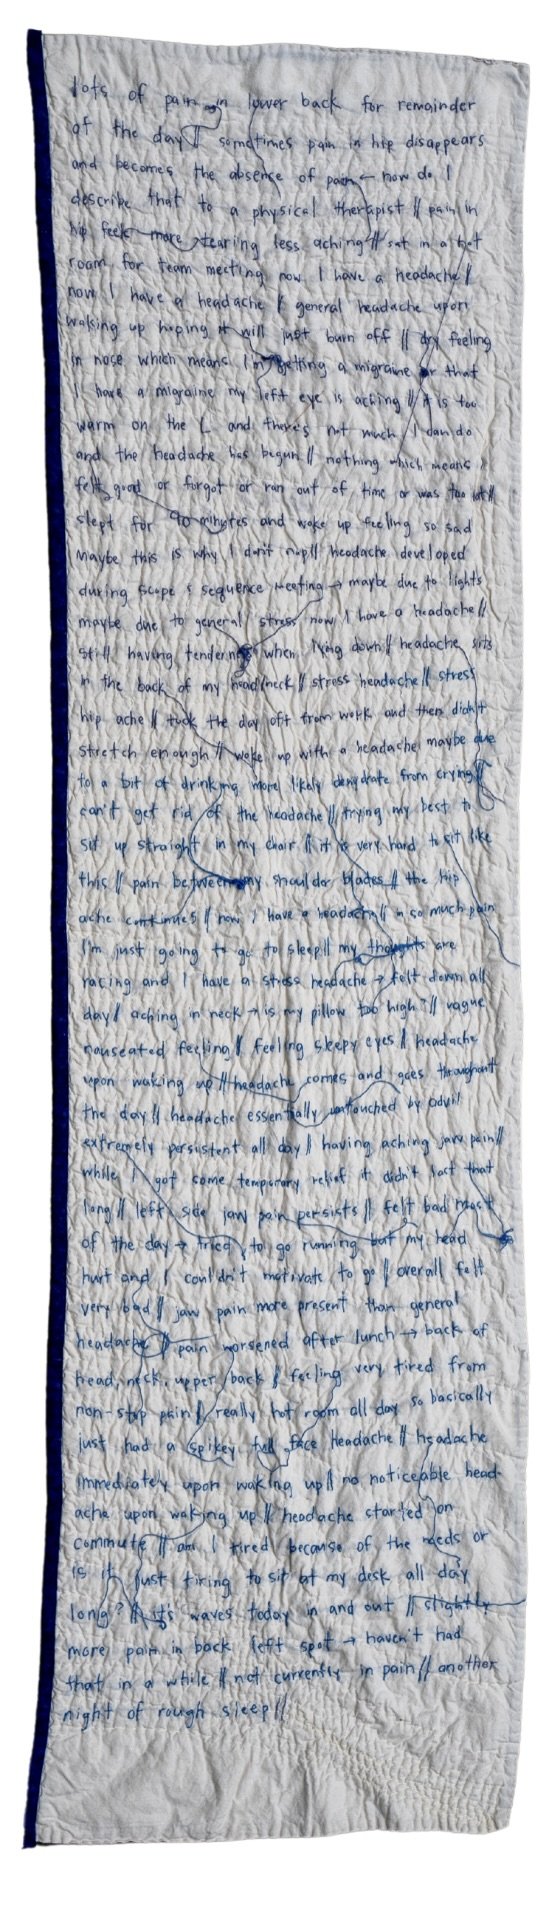 lots of pain in lower back for remainder
of the day // sometimes pain in hip disappears
and becomes the absence of pain ← how do I
describe that to a physical therapist // pain in
hip feels more tearing less aching // sat in a hot
room for team meeting now I have a headache //
now I have a headache // general headache upon
waking up hoping it will just burn off // dry feeling
in nose which means I'm getting a migraine or that
I have a migraine my left eye is aching // it is too
warm on the L and there's not much I can do
and the headache has begun // nothing which means I
felt good or forgot or ran out of time or was too
slept for 90 minutes and woke up feeling so sad
maybe this is why I don't nap // headache developed
during scope & sequence meeting → maybe due to lights
maybe due to general stress now I have a headache //
still having tenderness when lying down // headache sits
in the back of my head/neck // stress headache // stress
hip ache // took the day off from work and then didn't
stretch enough // woke up with a headache, maybe due
to a bit of drinking more likely dehydrate from crying //
can't get rid of the headache // trying my best to
sit up straight in my chair // it is very hard to sit like
this // pain between my shoulder blades // the hip
ache continues // now I have a headache // in so much pain
I'm just going to go to sleep // my thoughts are
racing and I have a stress headache → felt down all
day // aching in neck → is my pillow too high? // vague
nauseated feeling // feeling sleepy eyes // headache
upon waking up // headache comes and goes throughout
the day // headache essentially untouched by advil
extremely persistent all day // having aching jaw pain //
while I got some temporary relief it didn't last that
long // left side jaw pain persists // felt bad most
of the day → tried to go running but my head
hurt and I couldn't motivate to go // overall felt
very bad // jaw pain more present than general
headache // pain worsened after lunch → back of
head, neck, upper back // feeling very tired from
non-stop pain // really hot room all day so basically
just had a spikey full face headache // headache
immediately upon waking up // no noticeable head-
ache upon waking up // headache started on
commute // am I tired because of the meds or
is it just tiring to sit at my desk all day
long? // it's waves today in and out // slightly
more pain in back left spot → haven't had
that in a while // not currently in pain // another
night of rough sleep //